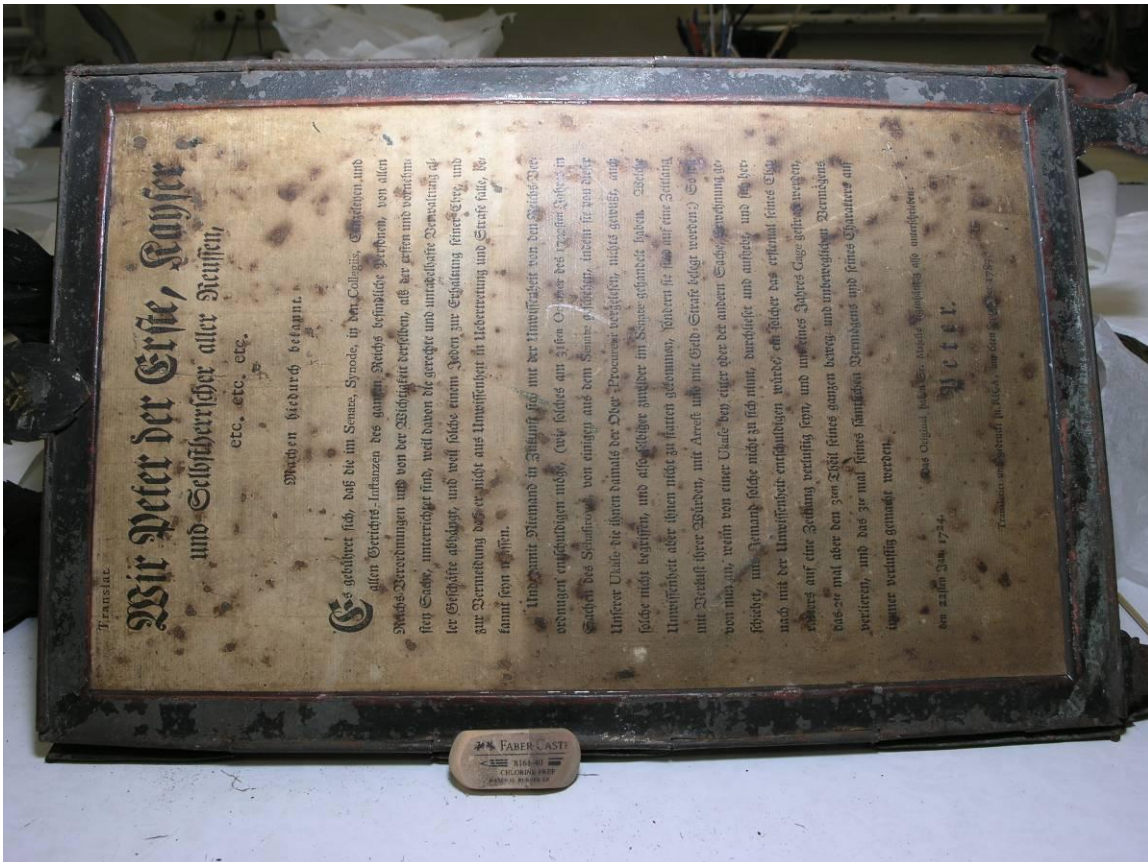 Translat.
Wir Peter der Erste, Kayser
und Selbstherrscher aller Reussen,
etc. etc. etc.
Machen hiedurch bekannt.
Es gebühret sich, daß die im Senate, Synode, in den Collegiis, Cantzeleyen, und
allen Gerichts-Instanzen des ganzen Reichs befindliche Personen, von allen
Reichs-Verordnungen und von der Wichtigkeit derselben, als der ersten und vornehm-
sten Sache, unterrichtet sind, weil davon die gerechte und untadelhafte Verwaltung al-
ler Geschäfte abhängt, und weil solche einem Jeden zur Erhaltung seiner Ehre, und
zur Vermeidung daß er nicht aus Unwissenheit in Uebertretung und Strafe falle, be-
kannt seyn müssen.
Und damit Niemand in Zukunft sich mit der Unwissenheit von den Reichs-Ver-
ordnungen entschuldigen möge, (wie solches am 31sten October des Jahres in
Sachen des von einigen aus dem Senate geschehen, indem sie von dieser
Unserer Ukase die ihnen damals der Ober-Procureur vorgelesen, nichts gewußt, auch
solche nicht begriffen, und also selbiger zuwider im Senate gehandelt haben. Welche
Unwissenheit aber ihnen nicht zu statten gekommen, sondern sie sind auf eine Zeitlang
mit Verlust ihrer Würden, mit Arrest und mit Geld-Strafe belegt worden:) So soll
von nun an, wenn von einer Ukase bey einer oder der andern Sache Erwehnung ge-
schiehet, und Jemand solche nicht zu sich nimt, durchlieset und aufhebt, und sich her-
nach mit der Unwissenheit entschuldigen würde, ein solcher das erstemal seines Cha-
rakters auf eine Zeitlang verlustig seyn, und um eines Jahres Gage gestraft werden,
das 2te mal aber den 3ten Theil seines ganzen beweg- und unbeweglichen Vermögens
verlieren, und das 3te mal seines sämtlichen Vermögens und seines Charakters auf
immer verlustig gemacht werden.
den 22sten Jan. 1724.
Das Original haben Sr. Kayserl. Majestät also unterschrieben:
Peter.
Translatirt und gedruckt in Riga, 1787.
FABER-CASTELL
CHLORINE FREE